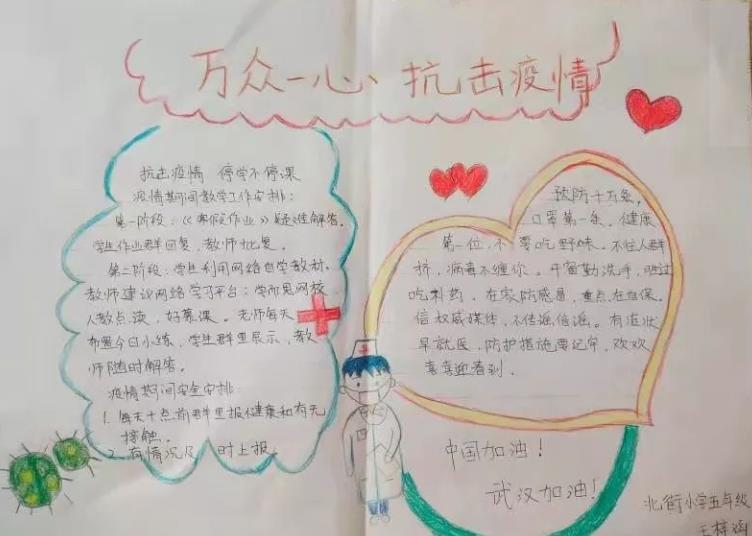 万众一心、抗击疫情
抗击疫情 停学不停课
疫情期间教学工作安排:
第一阶段:《寒假作业》疑难解答。
学生作业群回复,教师批复。
第二阶段:学生利用网络自学教材。
教师建议网络学习平台:学而思网校
人教点读,好慕课。老师每天
布置今日小练,学生群里展示,教
师随时解答。
疫情期间安全安排:
1. 每天十点前群里报健康和有无
接触。
2. 有情况及时上报。
预防千万条,
口罩第一条,健康
第一位,不要吃野味,不往人群
挤,病毒不缠你。开窗勤洗手,
吃剩药,在家防感冒,重点在自保。
信权威媒体,不传谣信谣。有症状
早就医,防护措施要记牢,欢欢
喜喜迎春到.
中国加油!
武汉加油!
北街小学五年级
王梓涵